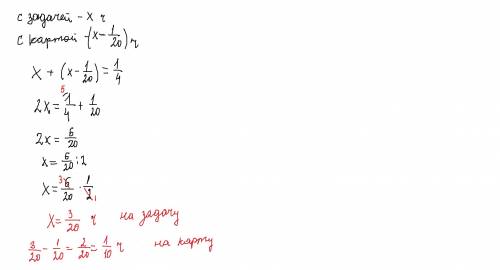 с задачей - x ч
с картой - (x - 1/20) ч
x + (x - 1/20) = 1/4
2x = 1/4 5 + 1/20
2x = 6/20
x = 6/20 : 2
x = 6/20 3 · 1/2 1
x = 3/20 ч на задачу
3/20 - 1/20 = 2/20 = 1/10 ч на карту